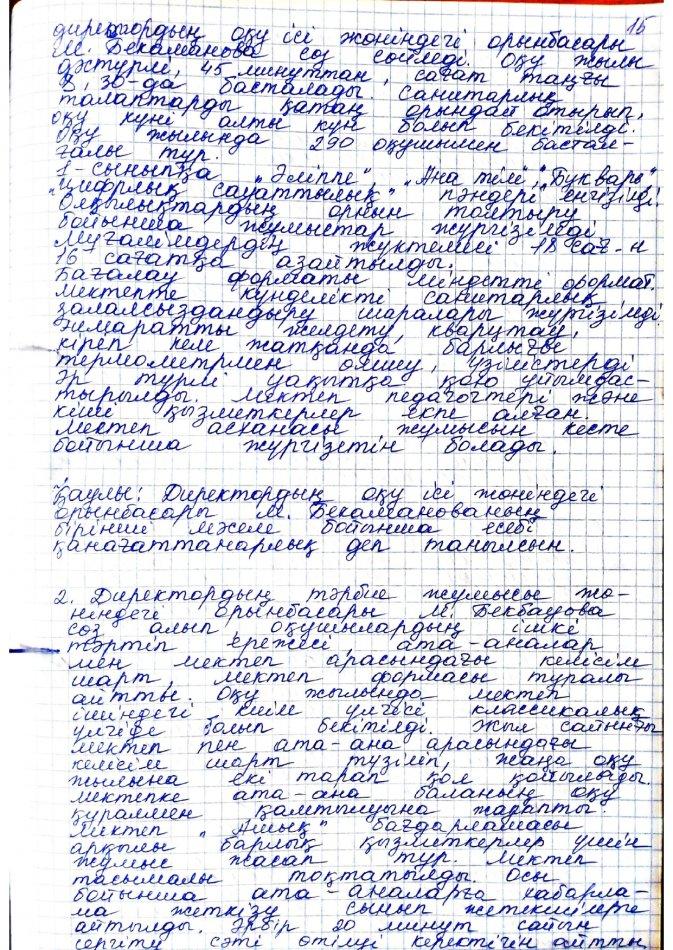 15
директордың оқу ісі жөніндегі орынбасары
М. Бекаманова сөз сөйледі. Оқу жылы
дәстүрлі, 45 минуттан, сағат таңғы
8,30-да басталады. Санитарлық
талаптарды қатаң орындай отырып,
оқу күні алты күн болып бекітілді.
Оқу жылында 290 оқушымен бастал-
ғалы тұр.
1-сыныпқа „Әліппе" „Ана тілі", „Букварь"
„Цифрлық сауаттылық" пәндері енгізілді.
Олқылықтардың орнын толтыру
бойынша жұмыстар жүргізіледі
Мұғалімдердің жүктемесі 18 сағ-н
16 сағатқа азайтылды.
Бағалау форматы міндетті формат.
Мектепте күнделікті санитарлық
залалсыздандыру шаралары жүргізіледі.
Ғимаратты желдету, кварцтау,
кіріп келе жатқанда барлығы
термометрмен өлшеу, үзілістерді
әр түрлі уақытқа қою ұйымдас-
тырылды. Мектеп педагогтері және
кіші қызметкерлер екпе алған.
Мектеп асханасы жұмысын кесте
бойынша жүргізетін болады.
Қаулы: Директордың оқу ісі жөніндегі
орынбасары М. Бекаманованың
бірінші мәселе бойынша есебі
қанағаттанарлық деп танылсын.
2. Директордың тәрбие жұмысы жө-
ніндегі орынбасары М. Бекбауова
сөз алып, оқушылардың ішкі
тәртіп ережесі, ата-аналар
мен мектеп арасындағы келісім
шарт, мектеп формасы туралы
айтты. Оқу жылында мектеп
ішіндегі киім үлгісі классикалық
үлгіде болып бекітілді. Жыл сайынғы
мектеп пен ата-ана арасындағы
келісім шарт түзіліп, жаңа оқу
жылына екі тарап қол қойылады.
Мектепке ата-ана баланың оқу
құралмен қамтылуына жауапты.
Мектеп „Ашық" бағдарламасы
арқылы барлық қызметкерлер үшін
жұмыс жасап тұр. Мектеп
тасымалы тоқтатылды. Осы
бойынша ата-аналарға хабарла-
ма жеткізу сынып жетекшілерге
айтылды. Әрбір 20 минут сайын
сергіту сәті өтілуі керектігін айтты